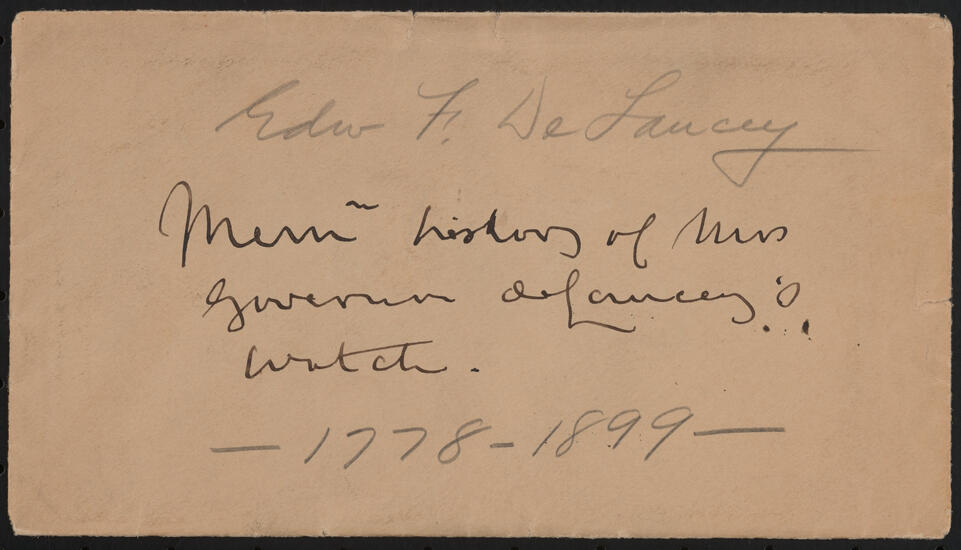 Edw F. De Lancey
Mem~ history of Mrs
Governor deLancey's
watch.
— 1778-1899 —